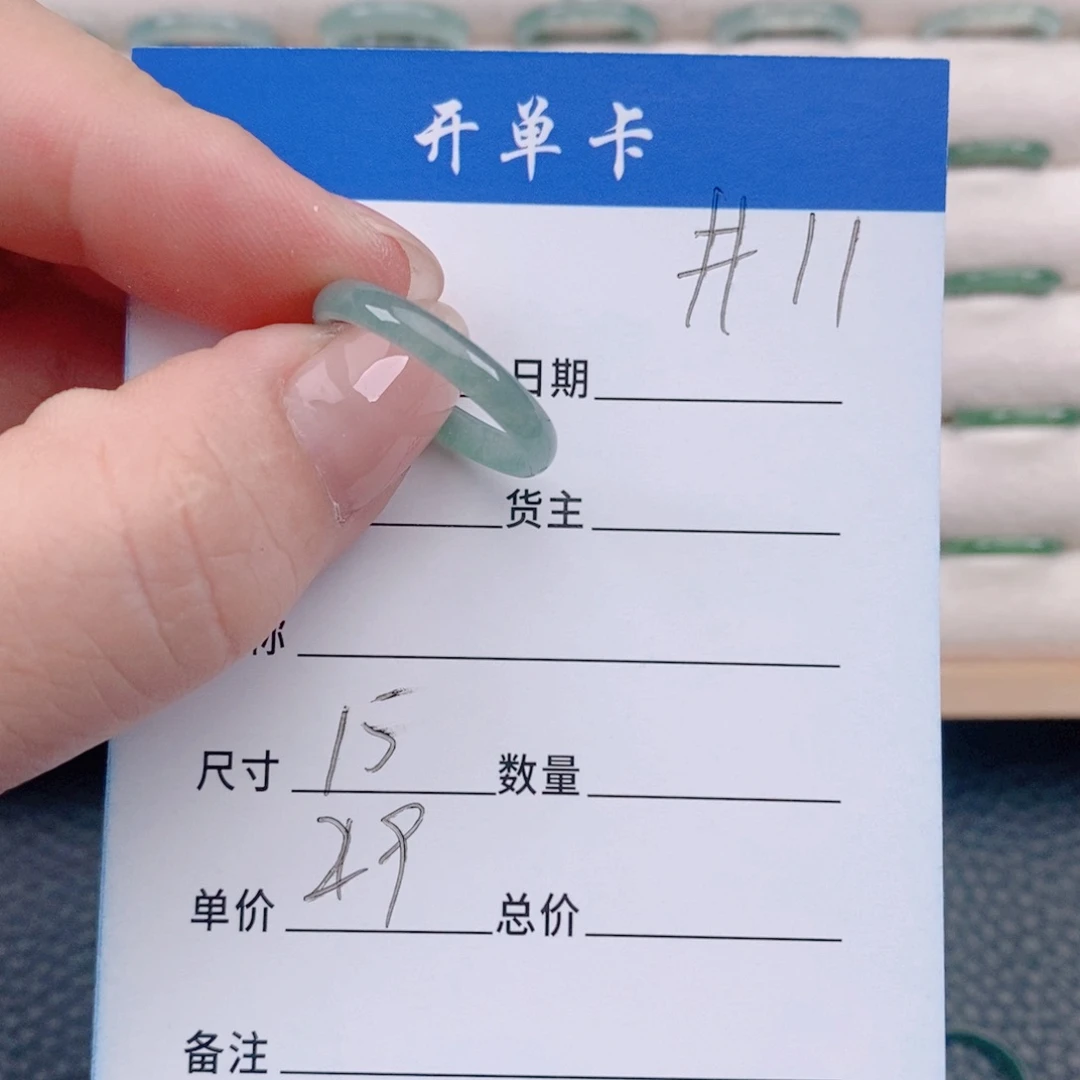 开单卡
#11
日期
货主
称
尺寸 15 数量
单价 29 总价
备注